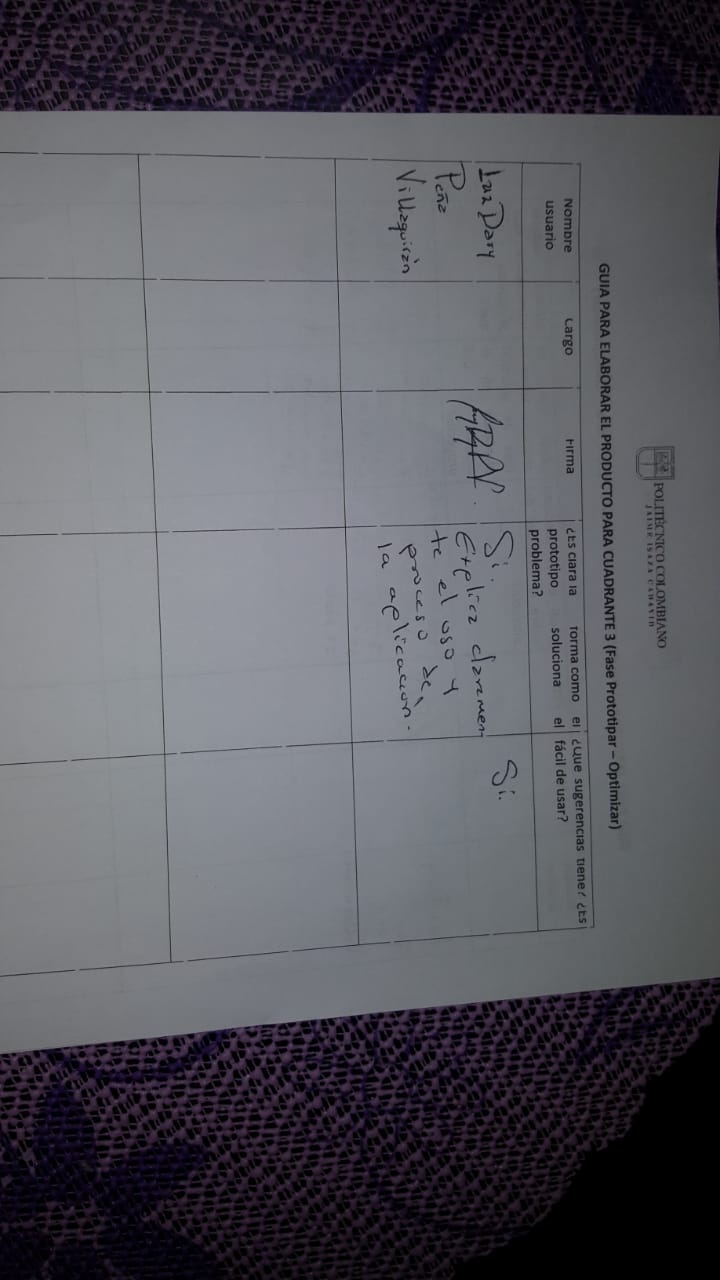 POLITÉCNICO COLOMBIANO
JAIME ISAZA CADAVID
GUIA PARA ELABORAR EL PRODUCTO PARA CUADRANTE 3 (Fase Prototipar – Optimizar)
Nombre
usuario
Cargo
Firma
¿Es clara la forma como el
prototipo soluciona el
problema?
¿Que sugerencias tiene? ¿Es
fácil de usar?
Luz Dary
Peña
Villaquirán
Si.
Explica claramen
te el uso y
proceso de
la aplicacion.
Si.